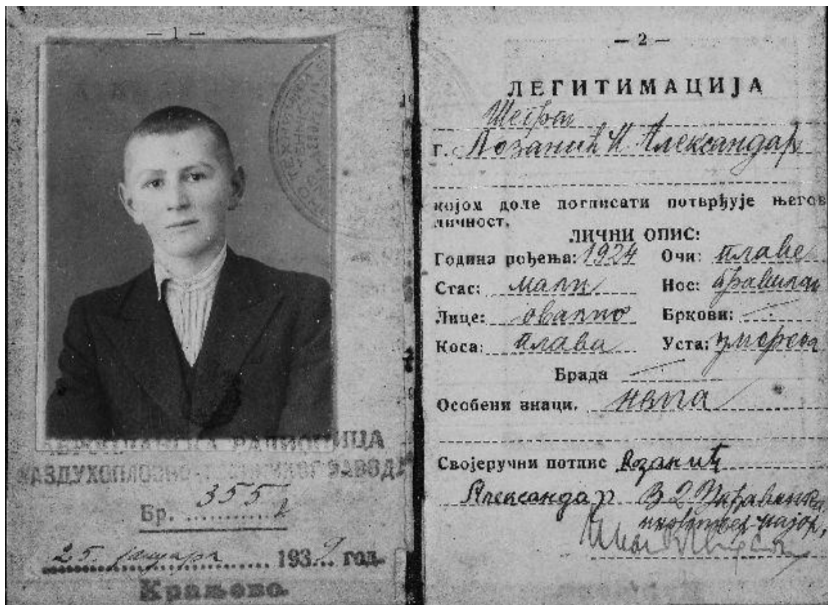 — 1 —
РАДИОНИЦА
ВАЗДУХОПЛОВНО- ЗАВОДА
Бр. 355
25 јануара 1939 год.
Краљево.
— 2 —
ЛЕГИТИМАЦИЈА
г. Лозанић Александар
којом доле потписати потврђује његов
личност.
ЛИЧНИ ОПИС:
Година рођења: 1924 Очи: плаве
Стас: мали Нос: правилан
Лице: овално Бркови:
Коса: плава Уста: умерена
Брада
Особени знаци. нема
Својеручни потпис Лозанић
Александар